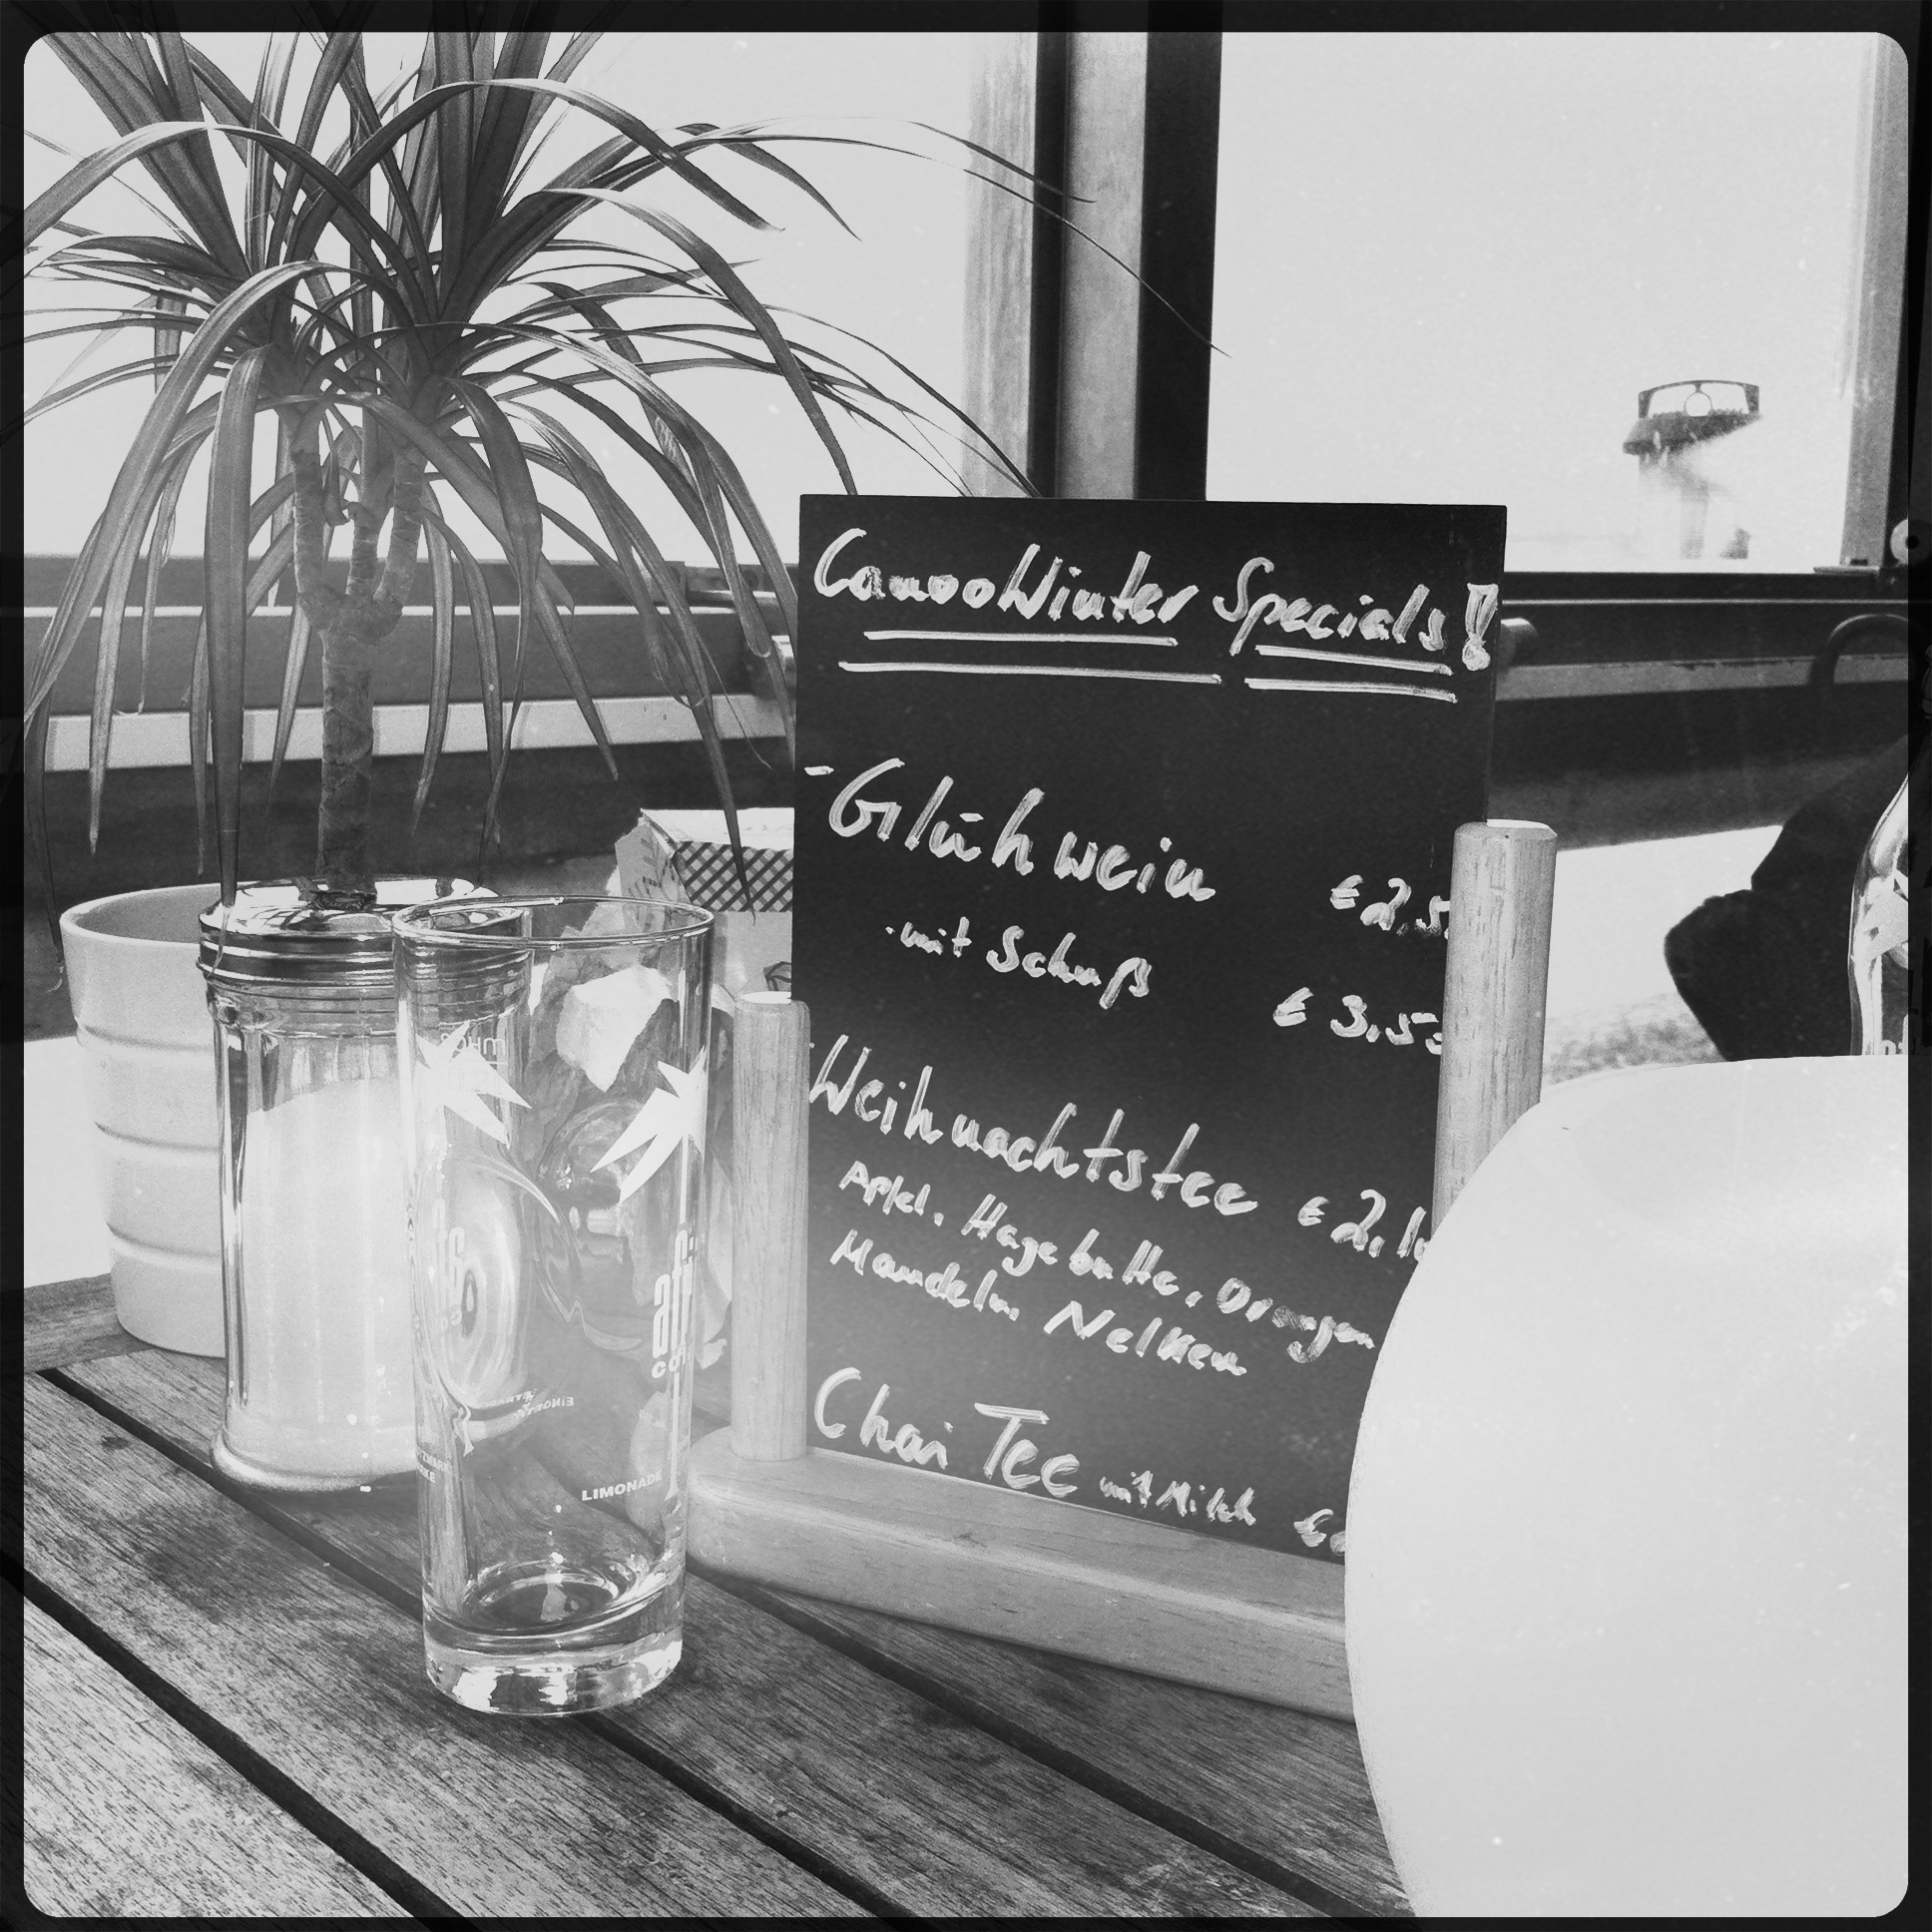 CanooWinter Specials!
- Glühwein €2,5
· mit Schuß € 3,5
Weihnachtstee € 2,1
Apfel, Hagebutte, Orangen
Mandeln, Nelken
Chai Tee mit Milch €
afri
LIMONADE